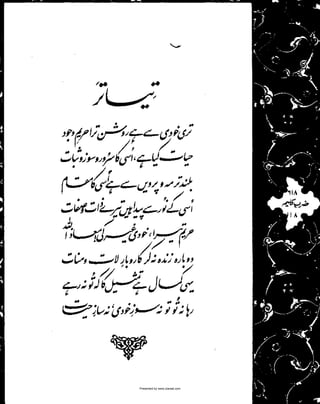 تیاتر
تری خودی سے ہے روشن ترا حریمِ وجود
حیات کیا ہے، اسی کا سرور و سوز و ثبات
بلند تر مہ و پرویں سے ہے اسی کا مقام
اسی کے نور سے پیدا ہیں تیرے ذات و صفات
حریم تیرا، خودی غیر کی! معاذ اللہ
دوبارہ زندہ نہ کر کاروبارِ لات و منات
یہی کمال ہے تمثیل کا کہ تو نہ رہے
رہا نہ تو تو نہ سوزِ خودی، نہ سازِ حیات
۶۱۸
ضرب کلیم
۱۱۸
Presented by www.ziaraat.com